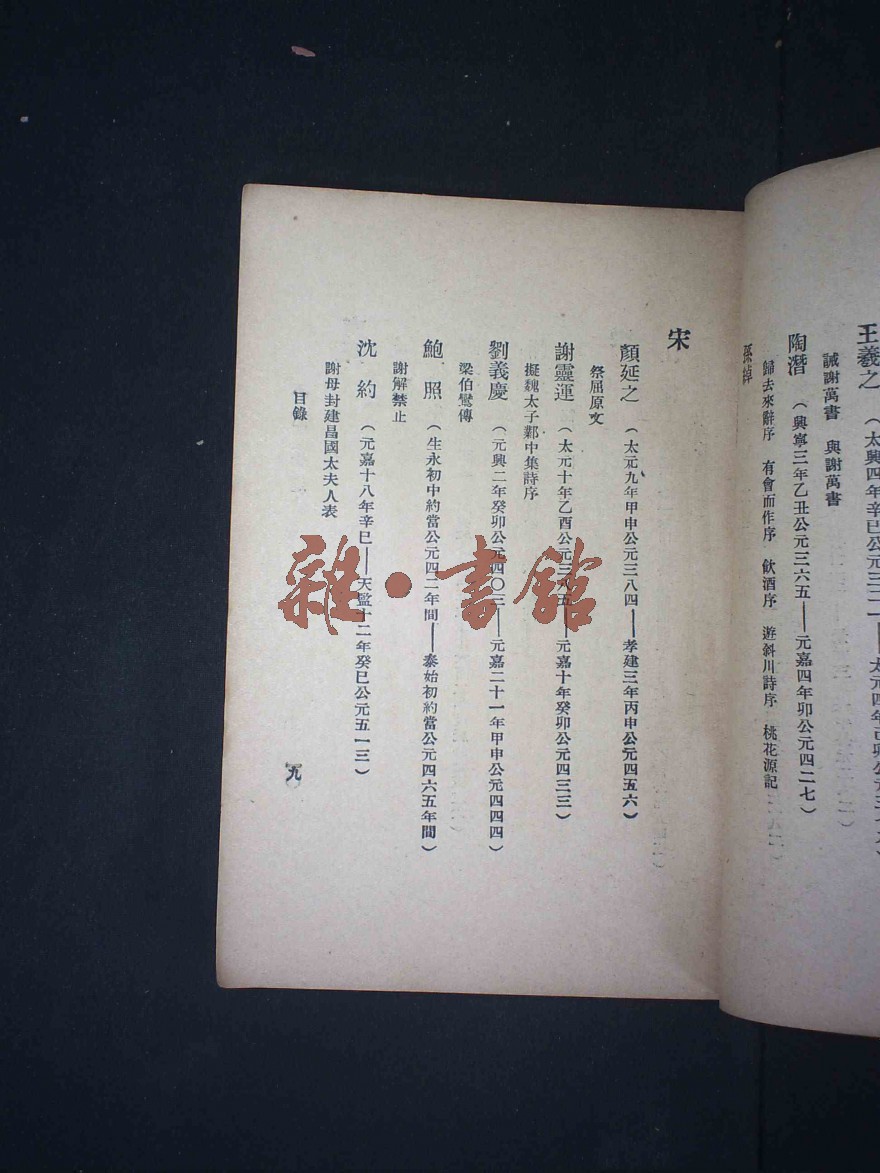 王羲之（太興四年辛巳公元三二一——太元四年己卯公元三
誡謝萬書　與謝萬書
陶潛（興寧三年乙丑公元三六五——元嘉四年卯公元四二七）
歸去來辭序　有會而作序　飲酒序　遊斜川詩序　桃花源記
孫綽
宋
顏延之（太元九年甲申公元三八四——孝建三年丙申公元四五六）
祭屈原文
謝靈運（太元十年乙酉公元三八五——元嘉十年癸卯公元四三三）
擬魏太子鄴中集詩序
劉義慶（元興二年癸卯公元四〇三——元嘉二十一年甲申公元四四四）
梁伯鸞傳
鮑照（生永初中約當公元四二年間——泰始初約當公元四六五年間）
謝解禁止
沈約（元嘉十八年辛巳——天監十二年癸巳公元五一三）
謝母封建昌國太夫人表
目錄
九
雜·書館